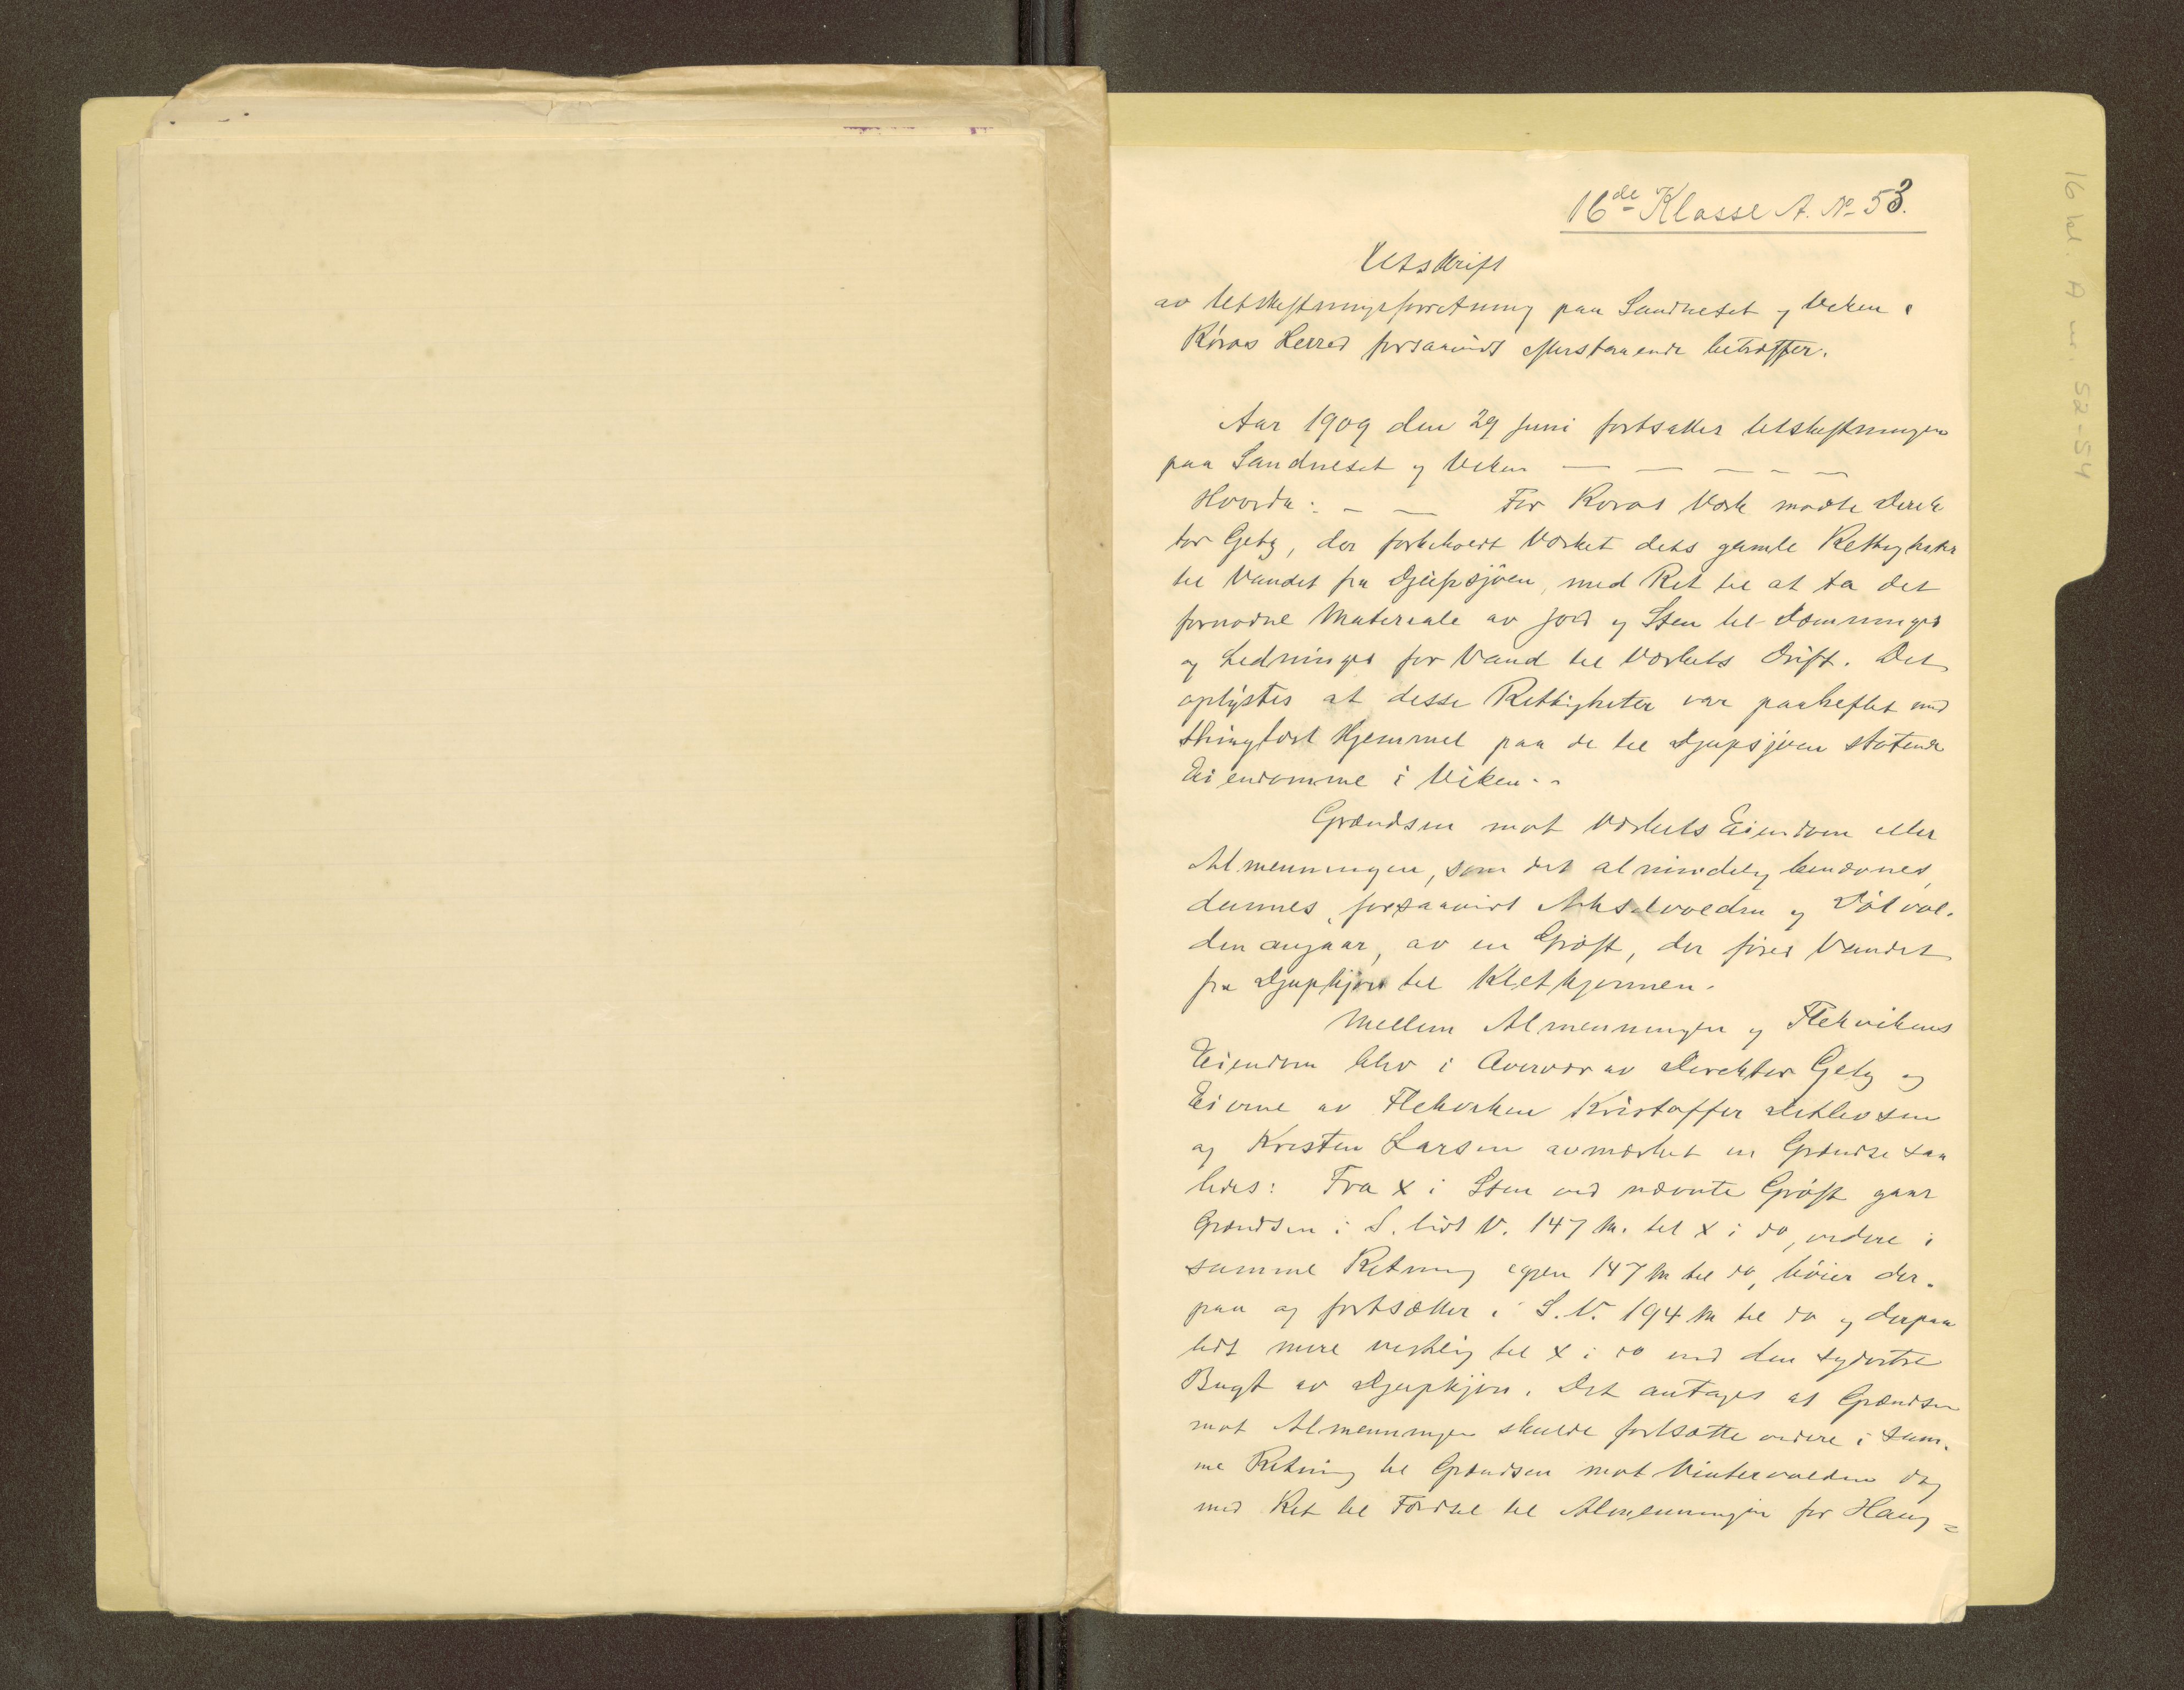 16de Klasse A. No 53.
Utskrift
av Utskiftningsforretning paa Sandneset og Viken i
Röros Herred forsaavidt efterstaaende betræffer.
Aar 1909 den 29 Juni fortsattes Utskiftningen
paa Sandneset og Viken — — — — —
Hvorda: — — For Röros Værk mødte Direk
tør Getz, der forbeholdt Værket dets gamle Rettigheter
til Vandet fra Djupsjöen, med Ret til at ta det
fornødne Materiale av Jord og Sten til Dæmninger
og Ledninger for Vand til Værkets Drift. Det
oplystes at disse Rettigheter var paaheftet med
thinglæst Hjemmel paa de til Djupsjöen støtende
Eiendomme i Viken. -
Grændsen mot Værkets Eiendom eller
Almenningen, som det almindelig benævnes,
dannes, forsaavidt Akselvolden og Dölvol-
den angaar, av en Gröft, der förer Vandet
fra Djuptjern til Kletтjernen.
Mellem Almenningen og Flekvikens
Eiendom blev i Overvær av Direktør Getz og
Eierne av Flekviken Kristoffer Detlevsen
og Kristen Larsen avmærket en Grændse saa
ledes: Fra x i Sten ved nævnte Gröft gaar
Grændsen i S. lidt V. 147 m. til x i do, videre i
samme Retning igjen 147 m til do, böier der-
paa og fortsætter i S.V. 194 m til do og derpaa
lidt mere vestlig til x i do ved den sydøstre
Bugt av Djuptjern. Det antages at Grændsen
mot Almenningen skulde fortsætte videre i sam-
me Retning til Grændsen mot Vintervolden dog
med Ret til Færdsel til Almenningen for Haug=
16 kl. A nr. 52-54